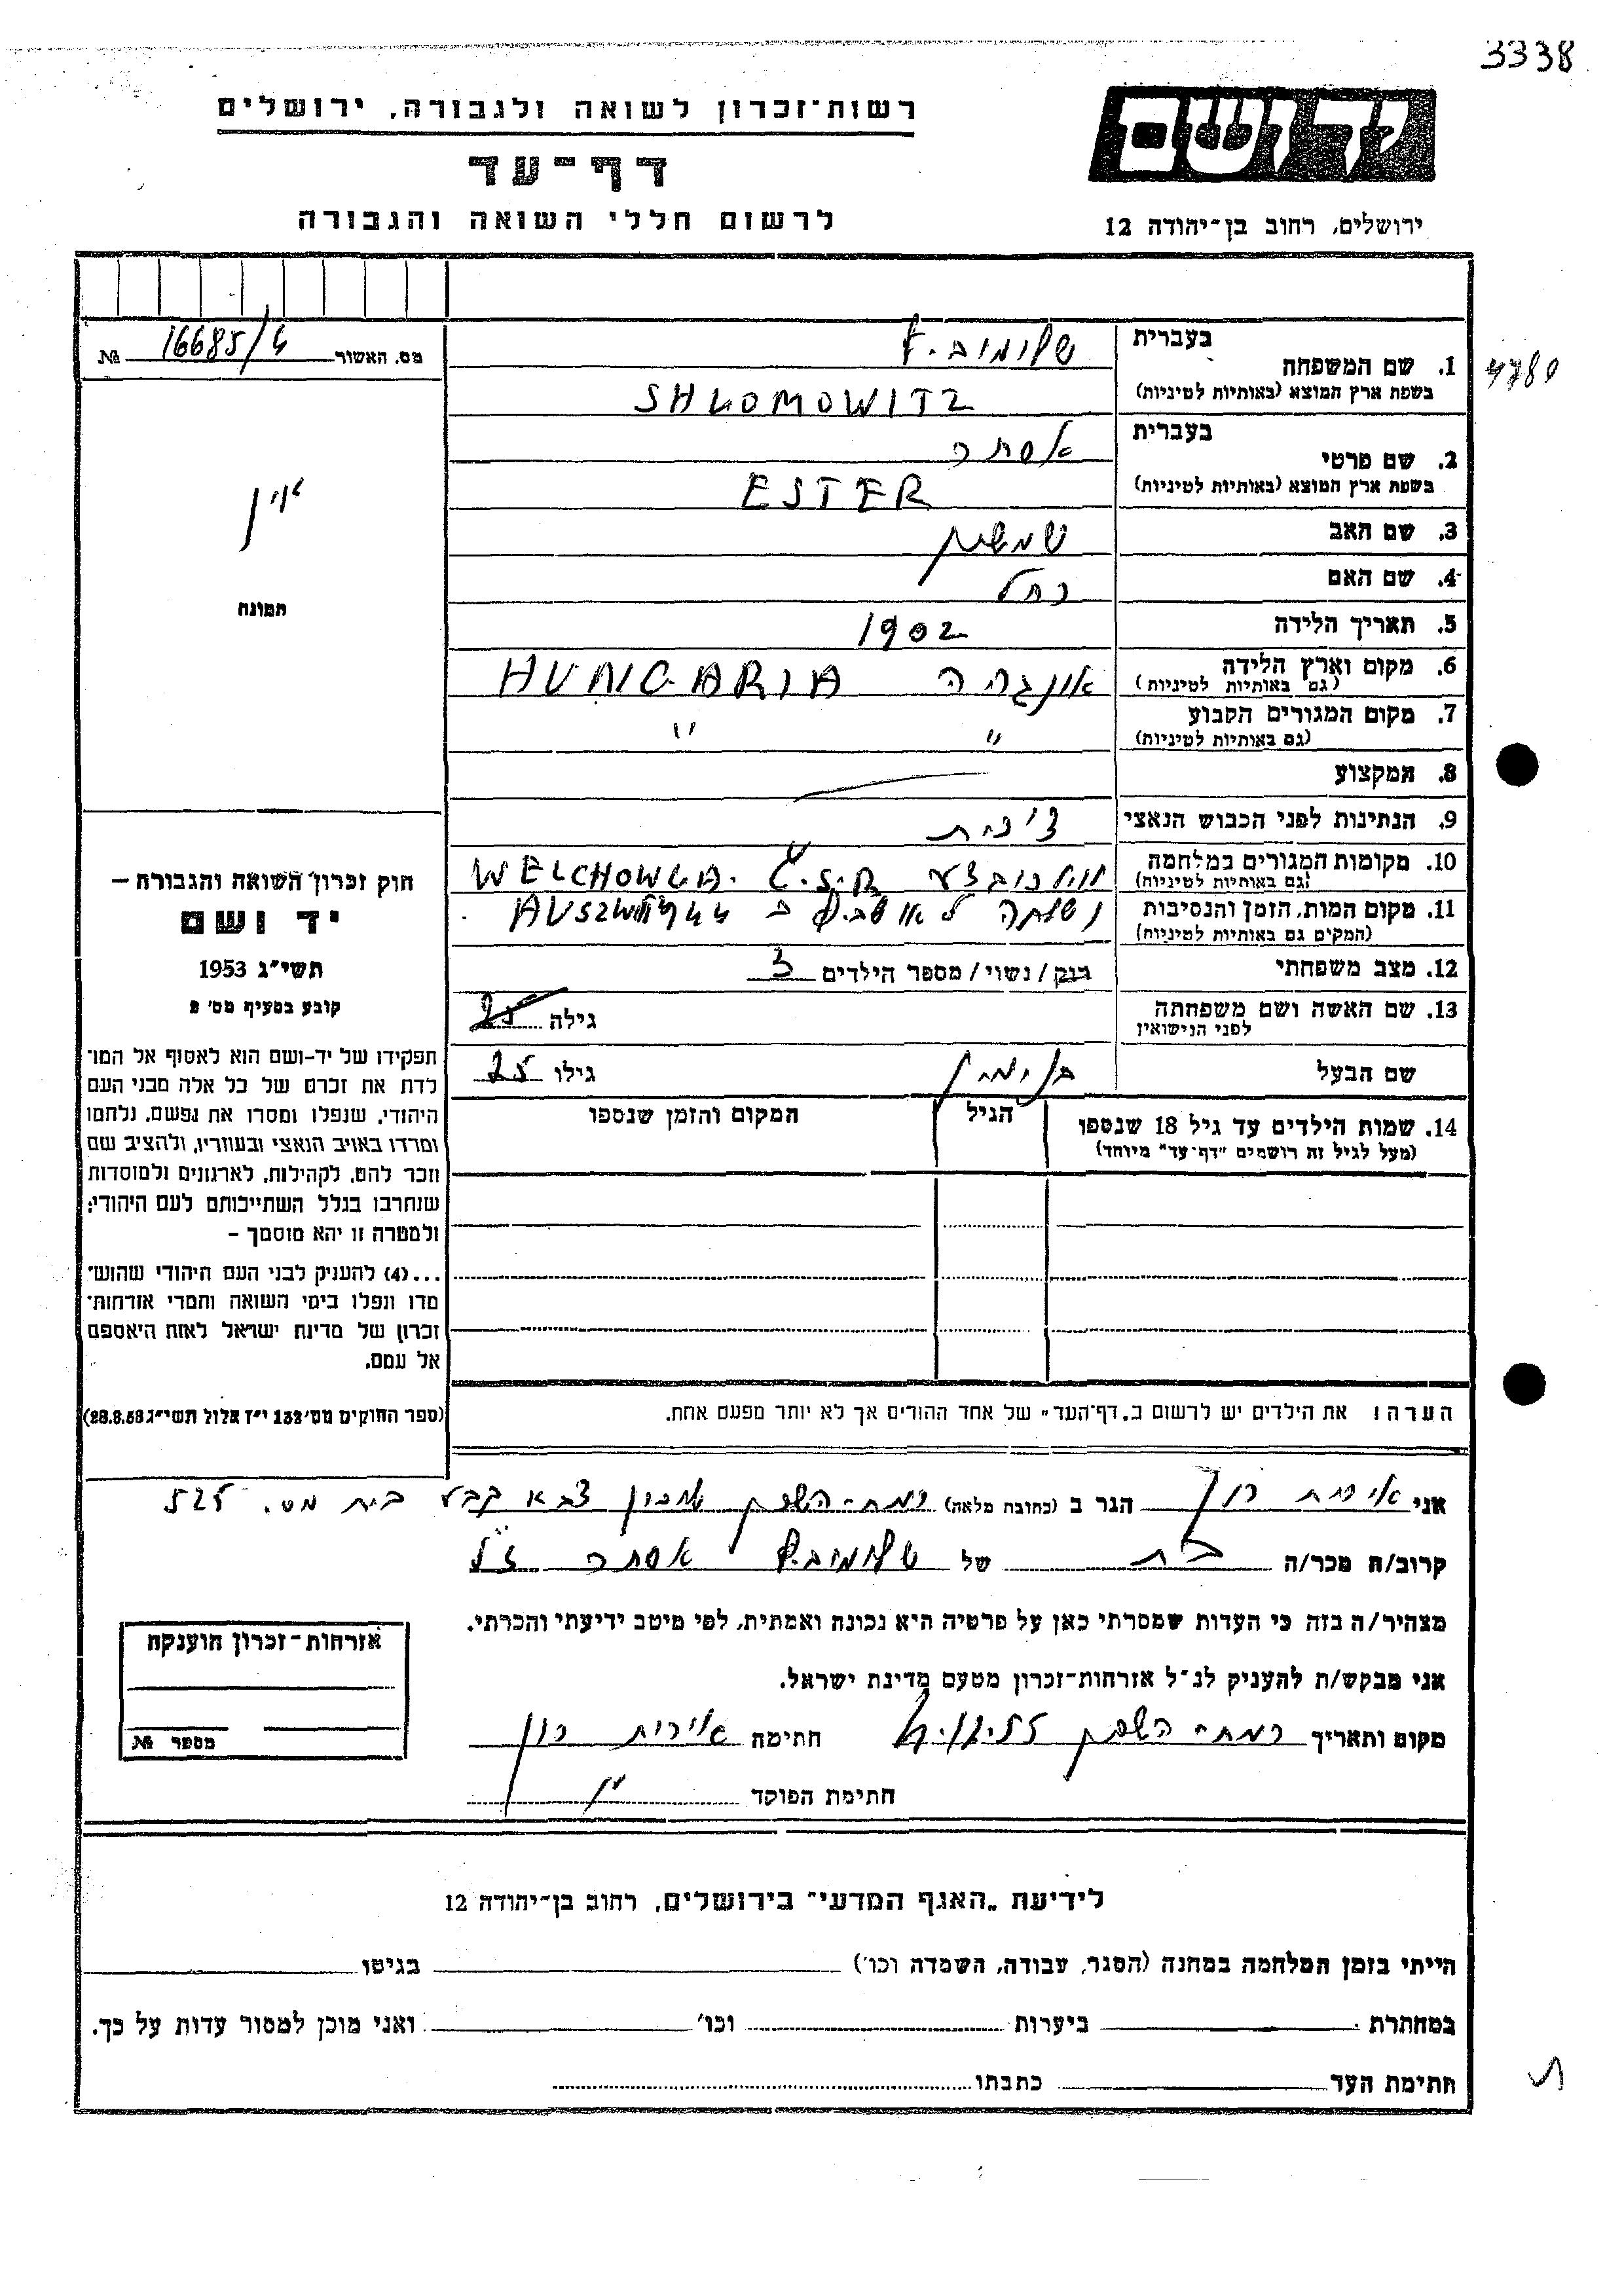 3338
רשות־זכרון לשואה ולגבורה, ירושלים
יד ושם
דף־עד
לרשום חללי השואה והגבורה
ירושלים, רחוב בן־יהודה 12
מס. האשור 16685/4 №
1. שם המשפחה
בעברית שלומוביץ
בשפת ארץ המוצא (באותיות לטיניות) SHLOMOWITZ
2. שם פרטי
בעברית אסתר
בשפת ארץ המוצא (באותיות לטיניות) ESTER
3. שם האב שמשון
4. שם האם רחל
5. תאריך הלידה 1902
6. מקום וארץ הלידה אונגריה HUNGARIA
(גם באותיות לטיניות)
7. מקום המגורים הקבוע " "
(גם באותיות לטיניות)
8. המקצוע
9. הנתינות לפני הכבוש הנאצי צ'כית
10. מקומות המגורים במלחמה Č.S.R. WELCHOWLA.
(גם באותיות לטיניות)
11. מקום המות, הזמן והנסיבות נשלחה לאושביץ ב 44
(המקום גם באותיות לטיניות)
12. מצב משפחתי רוק / נשוי / מספר הילדים 3
13. שם האשה ושם משפחתה גילה 25
לפני הנישואין
שם הבעל בנימין גילו 25
14. שמות הילדים עד גיל 18 שנספו הגיל המקום והזמן שנספו
(מעל לגיל זה רושמים "דף־עד" מיוחד)
הערה: את הילדים יש לרשום ב„דף־העד" של אחד ההורים אך לא יותר מפעם אחת.
אין
תמונה
חוק זכרון השואה והגבורה —
יד ושם
תשי"ג 1953
קובע בסעיף מס' 2
תפקידו של יד-ושם הוא לאסוף אל המו־
לדת את זכרם של כל אלה מבני העם
היהודי, שנפלו ומסרו את נפשם, נלחמו
ומרדו באויב הנאצי ובעוזריו, ולהציב שם
וזכר להם, לקהילות, לארגונים ולמוסדות
שנחרבו בגלל השתייכותם לעם היהודי;
ולמטרה זו יהא מוסמך –
...(4) להעניק לבני העם היהודי שהוש־
מדו ונפלו בימי השואה והמרי אזרחות־
זכרון של מדינת ישראל לאות היאספם
אל עמם.
(ספר החוקים מס' 132 י"ז אלול תשי"ג 28.8.53)
אני אירית רון הגר ב (כתובת מלאה) רמת-השרון שכון צבא קבע בית מס. 525
קרוב/ה מכר/ה בת של שלומוביץ אסתר ז"ל
מצהיר/ה בזה כי העדות שמסרתי כאן על פרטיה היא נכונה ואמתית, לפי מיטב ידיעתי והכרתי.
אני מבקש/ת להעניק לנ"ל אזרחות־זכרון מטעם מדינת ישראל.
מקום ותאריך רמת-השרון חתימה אירית רון
חתימת הפוקד
אזרחות־זכרון הוענקה
מספר №
לידיעת „האגף המדעי" בירושלים, רחוב בן־יהודה 12
הייתי בזמן המלחמה במחנה (הסגר, עבודה, השמדה וכו') בגיטו
במחתרת ביערות וכו' ואני מוכן למסור עדות על כך.
חתימת העד כתבתו